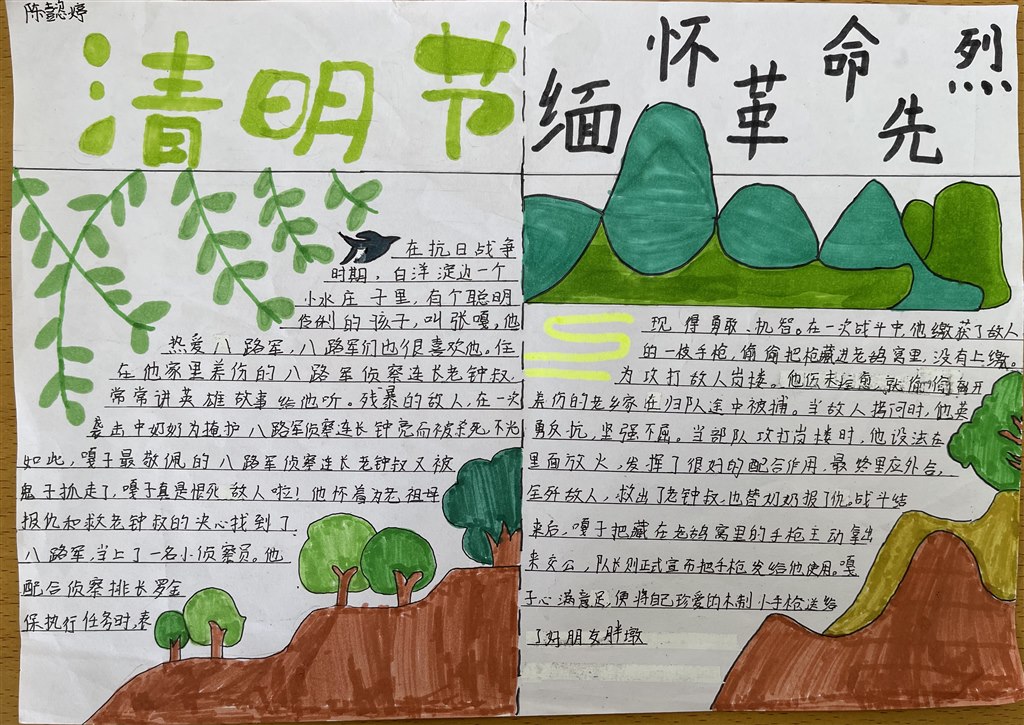 陈懿婷
清明节
缅怀革命先烈
在抗日战争
时期，白洋淀边一个
小水庄子里，有个聪明
伶俐的孩子，叫张嘎。他
热爱八路军，八路军们也很喜欢他。住
在他家里养伤的八路军侦察连长老钟叔，
常常讲英雄故事给他听。残暴的敌人，在一次
袭击中奶奶为掩护八路军侦察连长钟亮而被杀死，不光
如此，嘎子最敬佩的八路军侦察连长老钟叔又被
鬼子抓走了，嘎子真是恨死敌人啦！他怀着为老祖母
报仇和救老钟叔的决心找到了
八路军，当上了一名小侦察员。他
配合侦察排长罗金
保执行任务时，表
现得勇敢、机智。在一次战斗中他缴获了敌人
的一枝手枪，偷偷把枪藏进老鸹窝里，没有上缴。
为攻打敌人岗楼，他伤未痊愈就偷偷离开
养伤的老乡家在归队途中被捕。当敌人拷问时，他英
勇反抗，坚强不屈。当部队攻打岗楼时，他设法在
里面放火，发挥了很好的配合作用，最终里应外合，
全歼敌人，救出了老钟叔，也替奶奶报了仇。战斗结
束后，嘎子把藏在老鸹窝里的手枪主动拿出
来交公，队长则正式宣布把手枪发给他使用。嘎
子心满意足，便将自己珍爱的木制小手枪送给
了好朋友胖墩